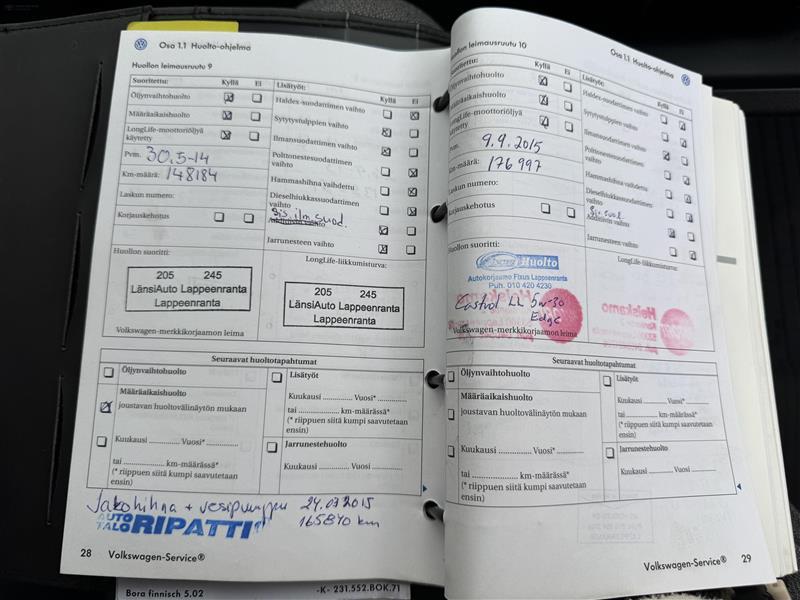 Osa 1.1 Huolto-ohjelma
Huollon leimausruutu 9
Suoritettu: Kyllä Ei
Öljynvaihtohuolto
Määräaikaishuolto
LongLife-moottoriöljyä
käytetty
Pvm. 30.5-14
Km-määrä: 148184
Laskun numero:
Korjauskehotus
Huollon suoritti:
205 245
LänsiAuto Lappeenranta
Lappeenranta
Volkswagen-merkkikorjaamon leima
Lisätyöt: Kyllä Ei
Haldex-suodattimen vaihto
Sytytystulppien vaihto
Ilmansuodattimen vaihto
Polttonestesuodattimen
vaihto
Hammashihna vaihdettu
Dieselhiukkassuodattimen
vaihto
Sis. ilm. suod.
Jarrunesteen vaihto
LongLife-liikkumisturva:
205 245
LänsiAuto Lappeenranta
Lappeenranta
Seuraavat huoltotapahtumat
Öljynvaihtohuolto
Määräaikaishuolto
joustavan huoltovälinäytön mukaan
Kuukausi .............. Vuosi* ..............
tai .................. km-määrässä*
(* riippuen siitä kumpi saavutetaan
ensin)
Lisätyöt
Kuukausi .............. Vuosi* ..............
tai .................. km-määrässä*
(* riippuen siitä kumpi saavutetaan
ensin)
Jarrunestehuolto
Kuukausi .............. Vuosi ..............
Jakohihna + vesipumppu 24.07.2015
165840 km
AUTO
TALO RIPATTI
28 Volkswagen-Service®
Bora finnisch 5.02 -K- 231.552.BOK.71
Osa 1.1 Huolto-ohjelma
Huollon leimausruutu 10
Suoritettu: Kyllä Ei
Öljynvaihtohuolto
Määräaikaishuolto
LongLife-moottoriöljyä
käytetty
Pvm. 9.9.2015
Km-määrä: 176997
Laskun numero:
Korjauskehotus
Huollon suoritti:
Huolto
Autokorjaamo Fixus Lappeenranta
Puh. 010 420 4230
Castrol LL 5w-30
Edge
Volkswagen-merkkikorjaamon leima
Lisätyöt: Kyllä Ei
Haldex-suodattimen vaihto
Sytytystulppien vaihto
Ilmansuodattimen vaihto
Polttonestesuodattimen
vaihto
Hammashihna vaihdettu
Dieselhiukkassuodattimen
vaihto
Additiivin vaihto
Jarrunesteen vaihto
LongLife-liikkumisturva:
Helskamo
Seuraavat huoltotapahtumat
Öljynvaihtohuolto
Määräaikaishuolto
joustavan huoltovälinäytön mukaan
Kuukausi .............. Vuosi* ..............
tai .................. km-määrässä*
(* riippuen siitä kumpi saavutetaan
ensin)
Lisätyöt
Kuukausi .............. Vuosi* ..............
tai .................. km-määrässä*
(* riippuen siitä kumpi saavutetaan
ensin)
Jarrunestehuolto
Kuukausi .............. Vuosi ..............
Volkswagen-Service® 29